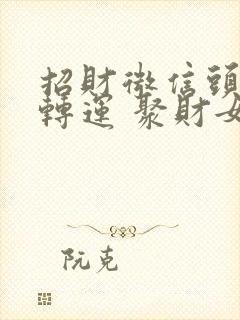 招財微信頭
轉運 聚財女
阮克